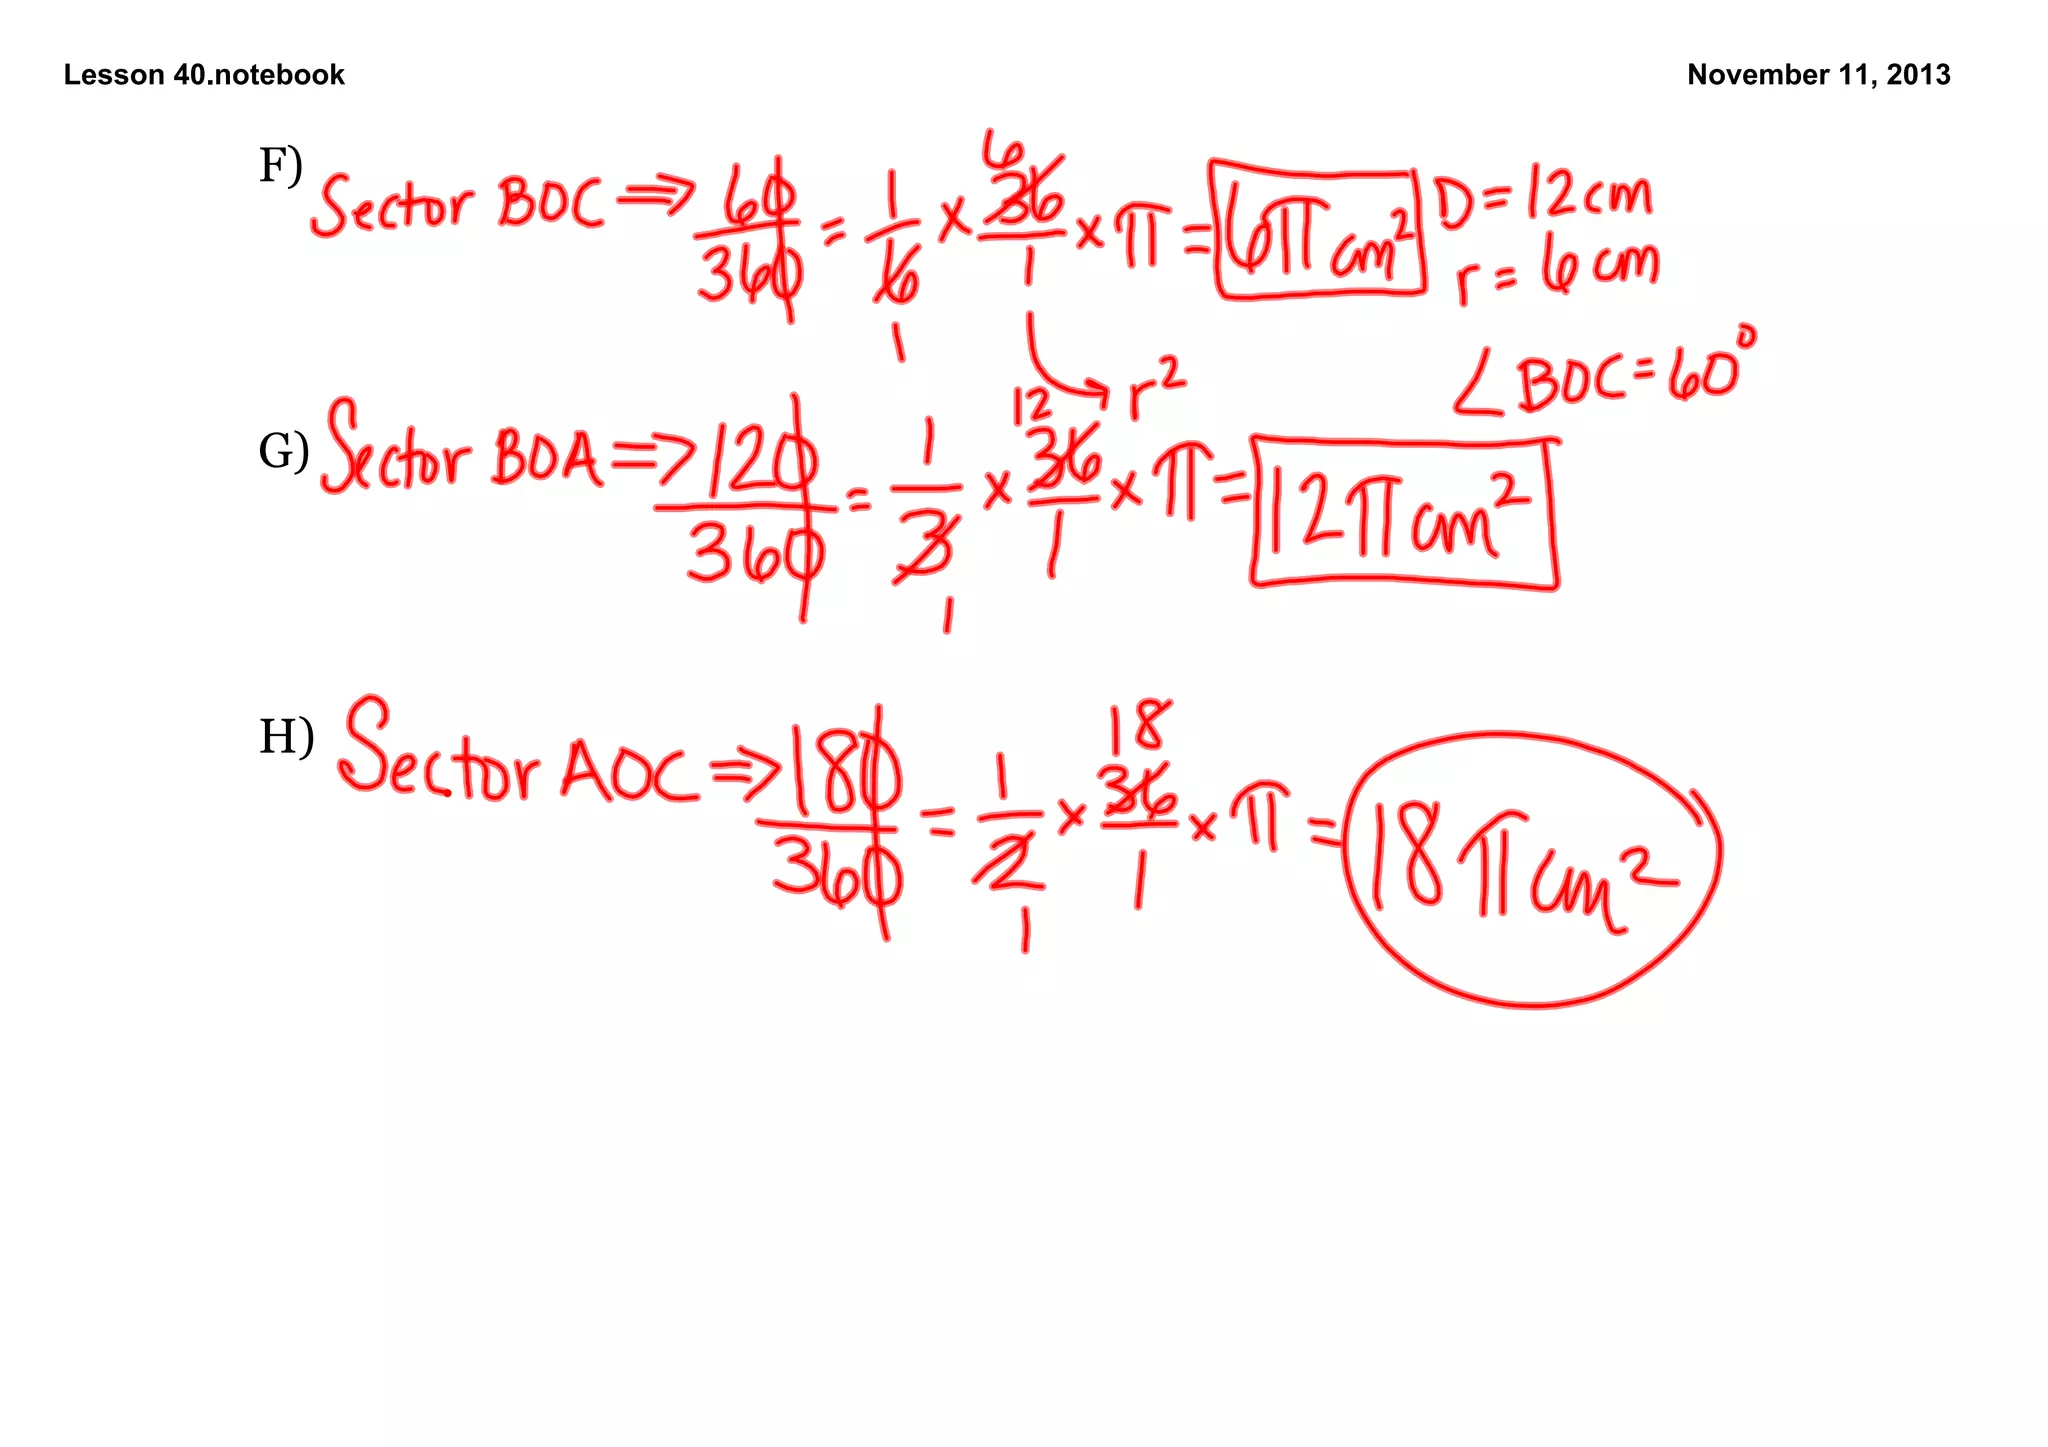 Lesson 40.notebook
November 11, 2013
F) Sector BOC ⇒ 60/360 = 1/6 × 36/1 × π = 6π cm² D = 12 cm
6
r = 6 cm
1
r²
∠BOC = 60°
12
G) Sector BOA ⇒ 120/360 = 1/3 × 36/1 × π = 12π cm²
1
18
H) Sector AOC ⇒ 180/360 = 1/2 × 36/1 × π = 18π cm²
1